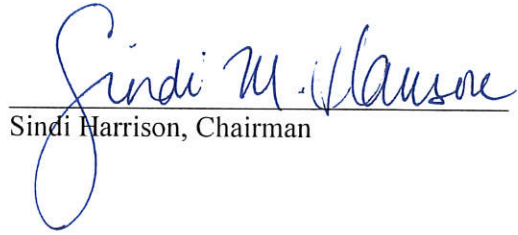 Sindi M. Harrison
Sindi Harrison, Chairman